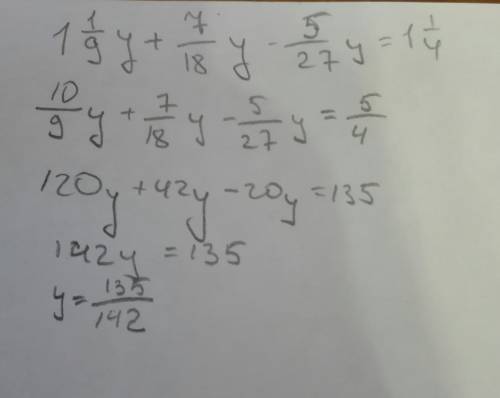 1 1/9 y + 7/18 y - 5/27 y = 1 1/4
10/9 y + 7/18 y - 5/27 y = 5/4
120y + 42y - 20y = 135
142y = 135
y = 135/142